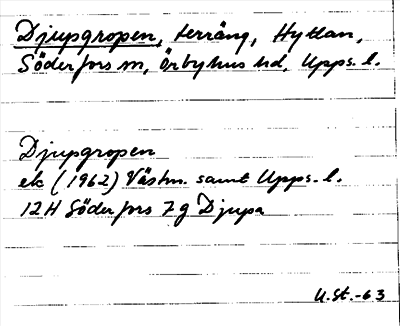 Djupgropen, terräng, Hyttan,
Söderfors sn, Örbyhus hd, Upps. l.
Djupgropen
ek (1962) Västm. samt Upps. l.
12H Söderfors 7g Djupa
U.St.-63